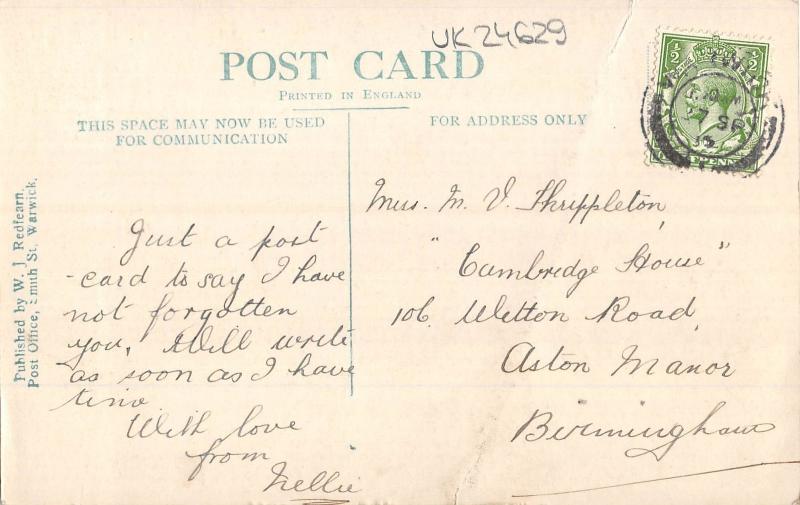 UK 24629
POST CARD
PRINTED IN ENGLAND
THIS SPACE MAY NOW BE USED
FOR COMMUNICATION
FOR ADDRESS ONLY
Published by W. J. Redfearn,
Post Office, Smith St. Warwick.
Just a post
-card to say I have
not forgotten
you, Will write
as soon as I have
time
With love
from
Nellie
Miss. M. V. Shrippleton,
"Cambridge House"
106. Witton Road,
Aston Manor
Birmingham
½ ½
7 SP